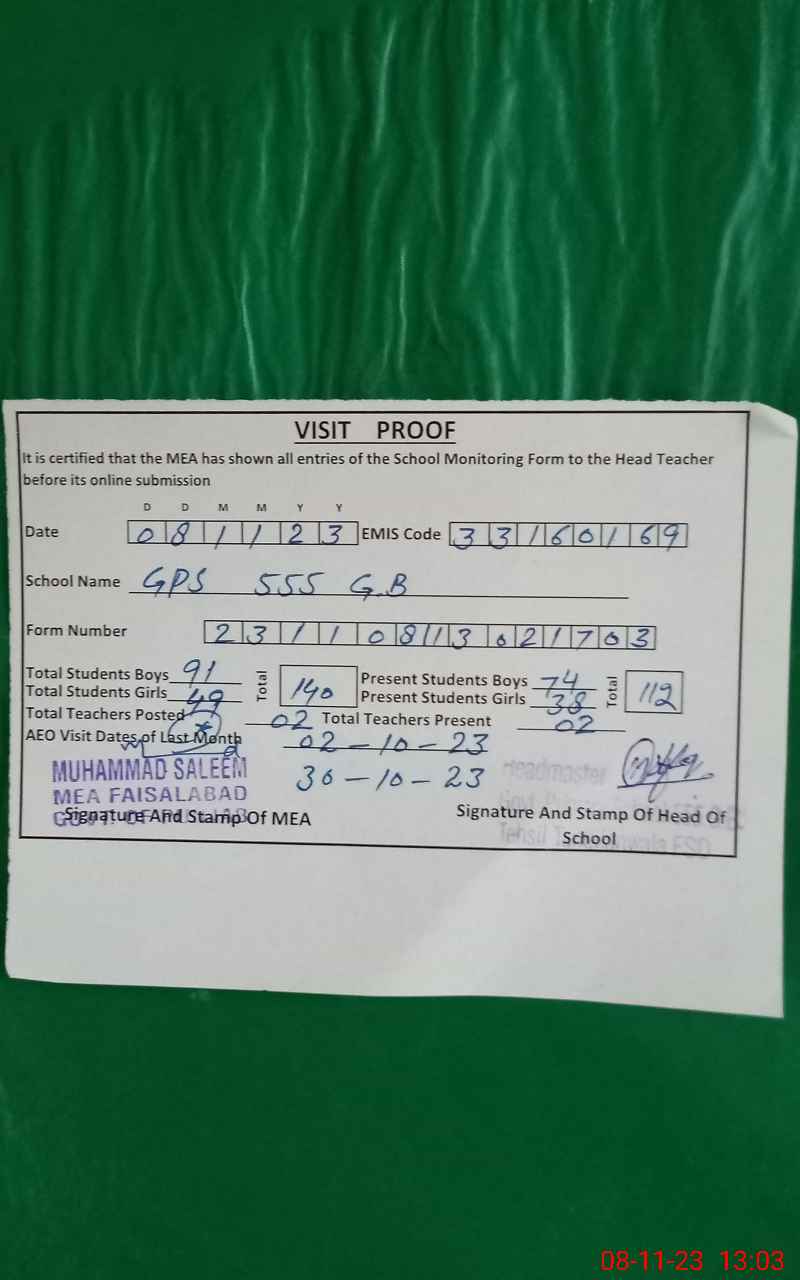 VISIT PROOF
It is certified that the MEA has shown all entries of the School Monitoring Form to the Head Teacher
before its online submission
D D M M Y Y
Date 0 8 1 1 2 3 EMIS Code 3 3 1 6 0 1 6 9
School Name GPS 555 G.B
Form Number 2 3 1 1 0 8 1 3 0 2 1 7 0 3
Total Students Boys 91 Total 140 Present Students Boys 74 Total 112
Total Students Girls 49 Present Students Girls 38
Total Teachers Posted 02 Total Teachers Present 02
AEO Visit Dates of Last Month 02-10-23
30-10-23
MUHAMMAD SALEEM
MEA FAISALABAD
Headmaster
Signature And Stamp Of MEA
Signature And Stamp Of Head Of
School
Tehsil
08-11-23 13:03